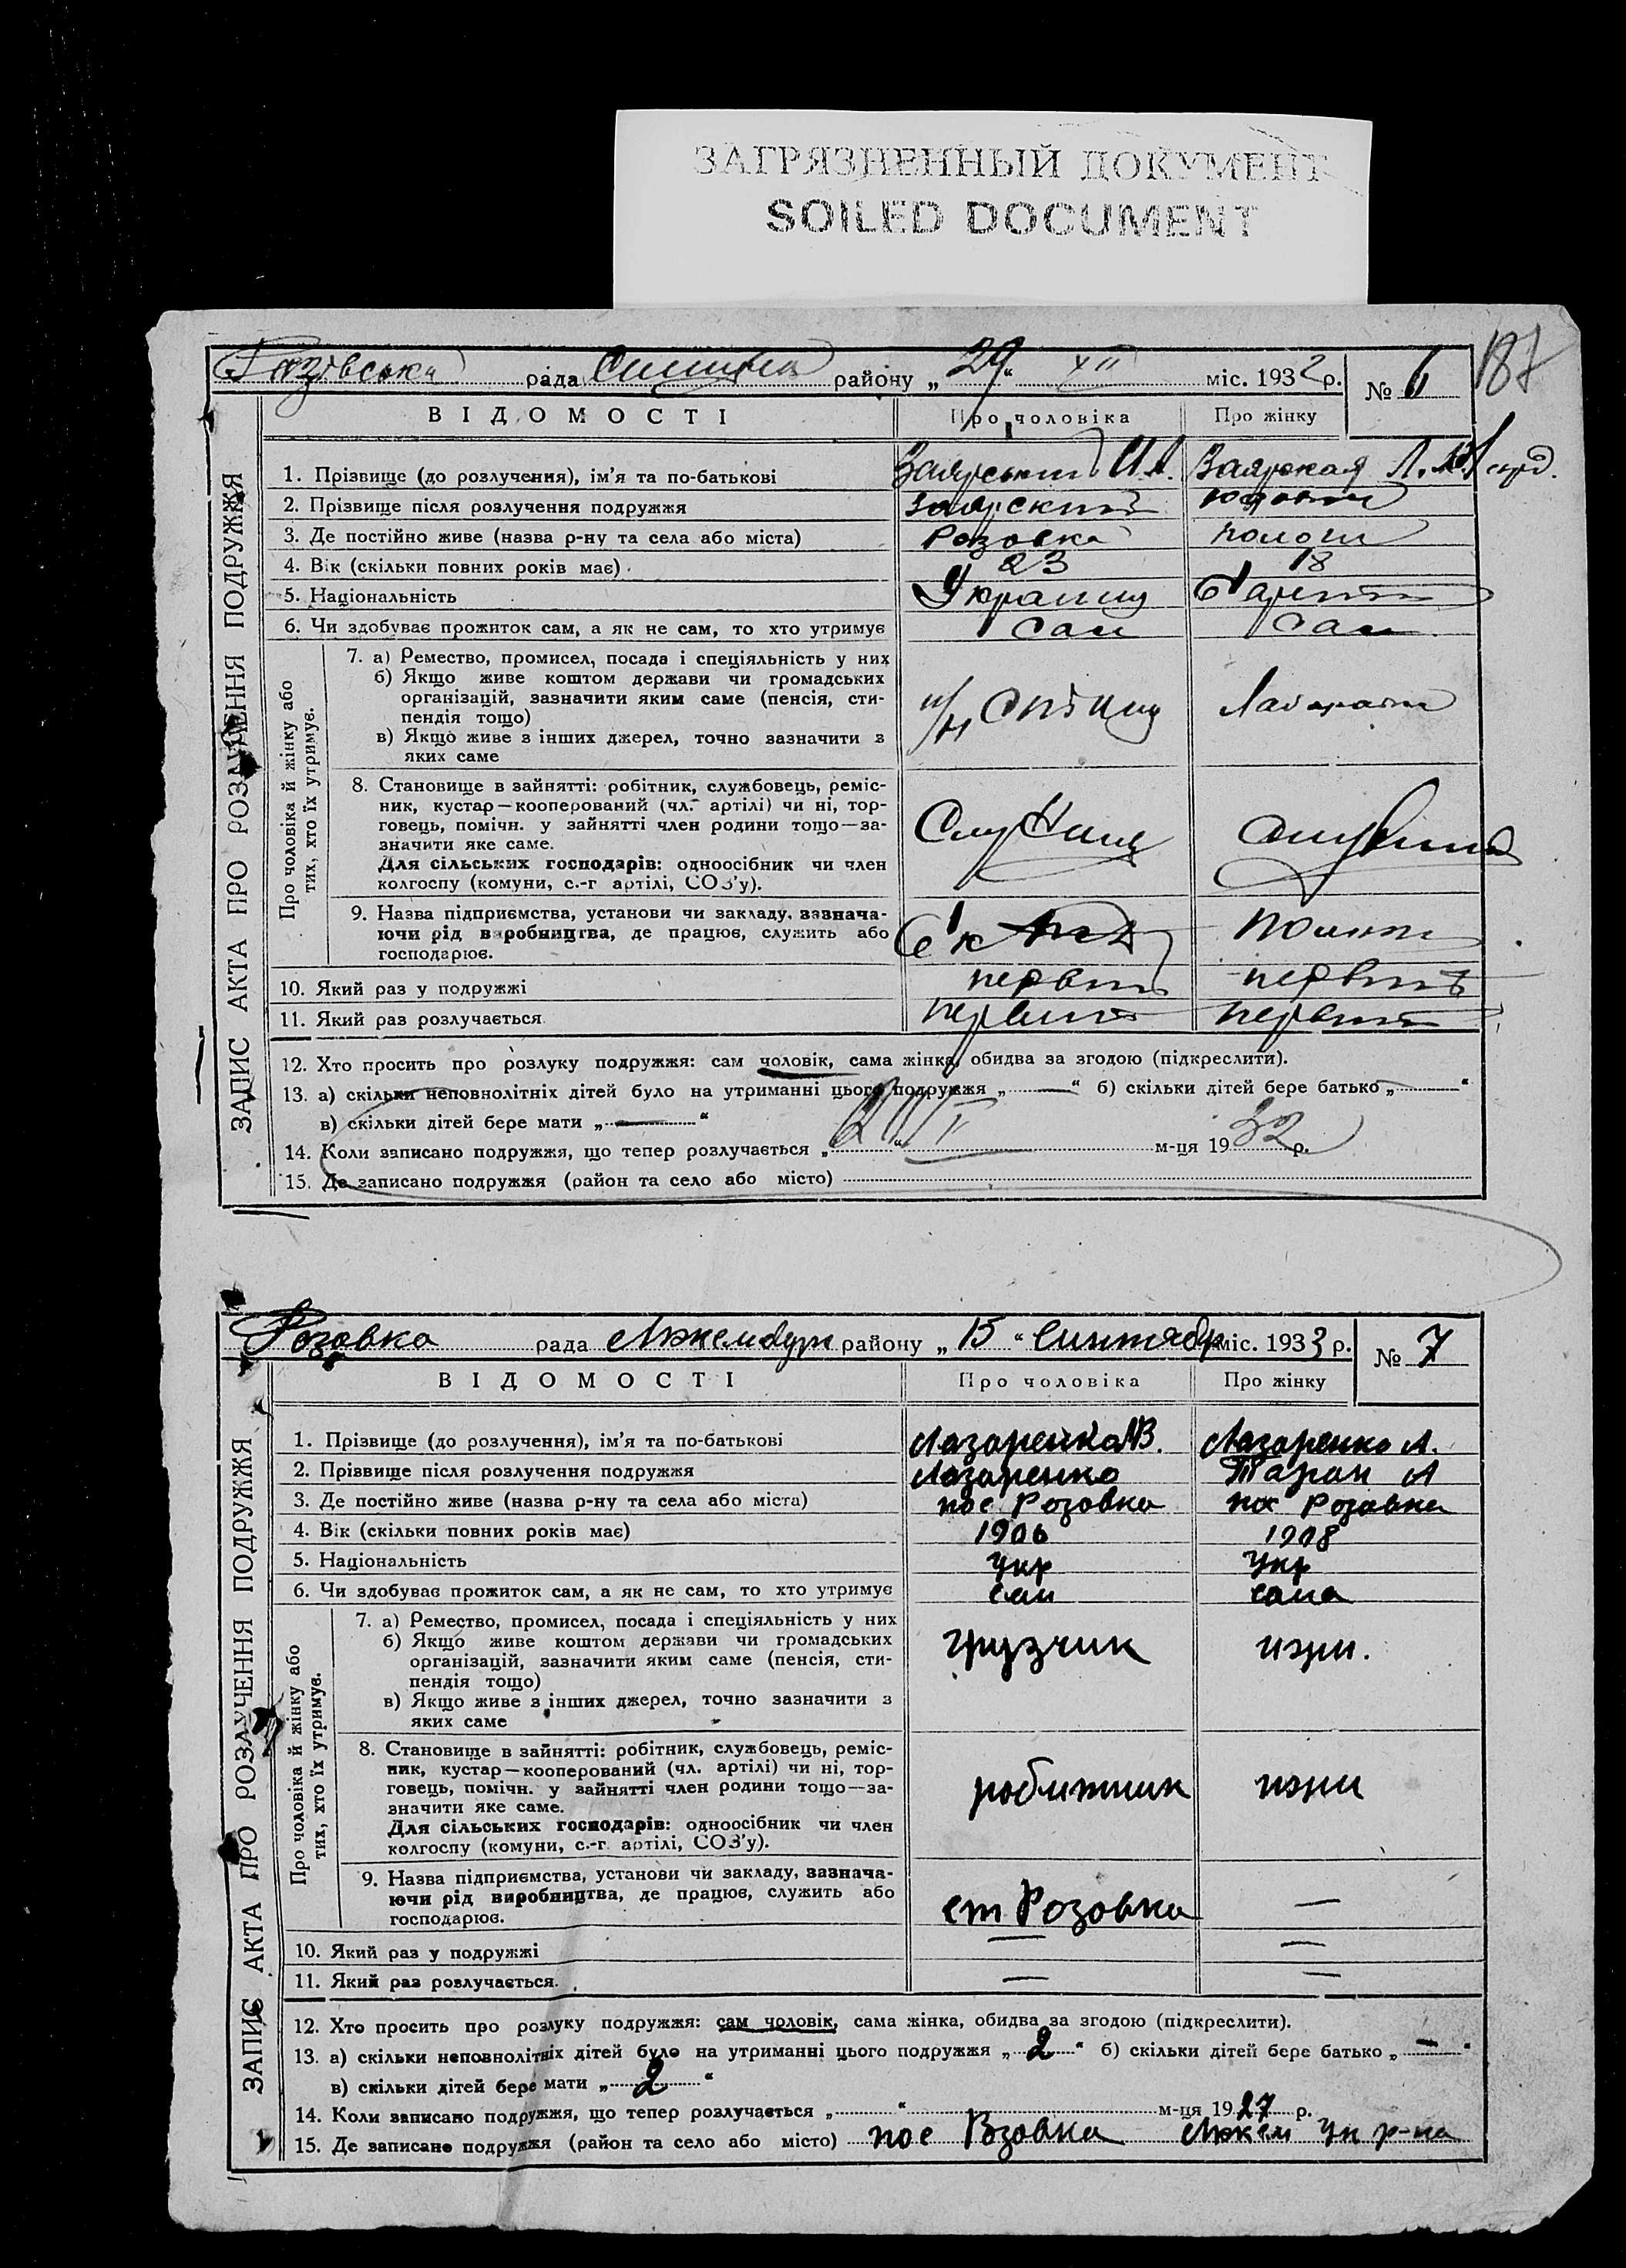 ЗАГРЯЗНЕННЫЙ ДОКУМЕНТ
SOILED DOCUMENT
187
рада району „29“ XII міс. 1932 р. № 6
ВІДОМОСТІ Про чоловіка Про жінку
ЗАПИС АКТА ПРО РОЗЛУЧЕННЯ ПОДРУЖЖЯ
1. Прізвище (до розлучення), ім'я та по-батькові
2. Прізвище після розлучення подружжя
3. Де постійно живе (назва р-ну та села або міста) Розовка пологи
4. Вік (скільки повних років має) 23 18
5. Національність
6. Чи здобуває прожиток сам, а як не сам, то хто утримує сам сам
Про чоловіка й жінку або
тих, хто їх утримує.
7. а) Ремество, промисел, посада і спеціяльність у них
б) Якщо живе коштом держави чи громадських
організацій, зазначити яким саме (пенсія, сти-
пендія тощо)
в) Якщо живе з інших джерел, точно зазначити з
яких саме
8. Становище в зайнятті: робітник, службовець, реміс-
ник, кустар—кооперований (чл. артілі) чи ні, тор-
говець, помічн. у зайнятті член родини тощо—за-
значити яке саме.
Для сільських господарів: одноосібник чи член
колгоспу (комуни, с.-г артілі, СОЗ'у).
9. Назва підприємства, установи чи закладу, зазнача-
ючи рід виробництва, де працює, служить або
господарює.
10. Який раз у подружжі первый первый
11. Який раз розлучається первый первый
12. Хто просить про розлуку подружжя: сам чоловік, сама жінка, обидва за згодою (підкреслити).
13. а) скільки неповнолітніх дітей було на утриманні цього подружжя „—“ б) скільки дітей бере батько „—“
в) скільки дітей бере мати „—“
14. Коли записано подружжя, що тепер розлучається „ “ м-ця 1932 р.
15. Де записано подружжя (район та село або місто)
Розовка рада району „15“ міс. 1933 р. № 7
ВІДОМОСТІ Про чоловіка Про жінку
ЗАПИС АКТА ПРО РОЗЛУЧЕННЯ ПОДРУЖЖЯ
1. Прізвище (до розлучення), ім'я та по-батькові Лазаренко В. Лазаренко А.
2. Прізвище після розлучення подружжя Лазаренко Таран А
3. Де постійно живе (назва р-ну та села або міста) пос Розовка пос Розовка
4. Вік (скільки повних років має) 1906 1908
5. Національність Укр Укр
6. Чи здобуває прожиток сам, а як не сам, то хто утримує сам сама
Про чоловіка й жінку або
тих, хто їх утримує.
7. а) Ремество, промисел, посада і спеціяльність у них грузчик
б) Якщо живе коштом держави чи громадських
організацій, зазначити яким саме (пенсія, сти-
пендія тощо)
в) Якщо живе з інших джерел, точно зазначити з
яких саме
8. Становище в зайнятті: робітник, службовець, реміс-
ник, кустар—кооперований (чл. артілі) чи ні, тор-
говець, помічн. у зайнятті член родини тощо—за-
значити яке саме.
Для сільських господарів: одноосібник чи член
колгоспу (комуни, с.-г. артілі, СОЗ'у).
робитник
9. Назва підприємства, установи чи закладу, зазнача-
ючи рід виробництва, де працює, служить або
господарює.
ст Розовка —
10. Який раз у подружжі — —
11. Який раз розлучається. — —
12. Хто просить про розлуку подружжя: сам чоловік, сама жінка, обидва за згодою (підкреслити).
13. а) скільки неповнолітніх дітей було на утриманні цього подружжя „2“ б) скільки дітей бере батько „—“
в) скільки дітей бере мати „2“
14. Коли записано подружжя, що тепер розлучається „ “ м-ця 1927 р.
15. Де записано подружжя (район та село або місто) пос р-на